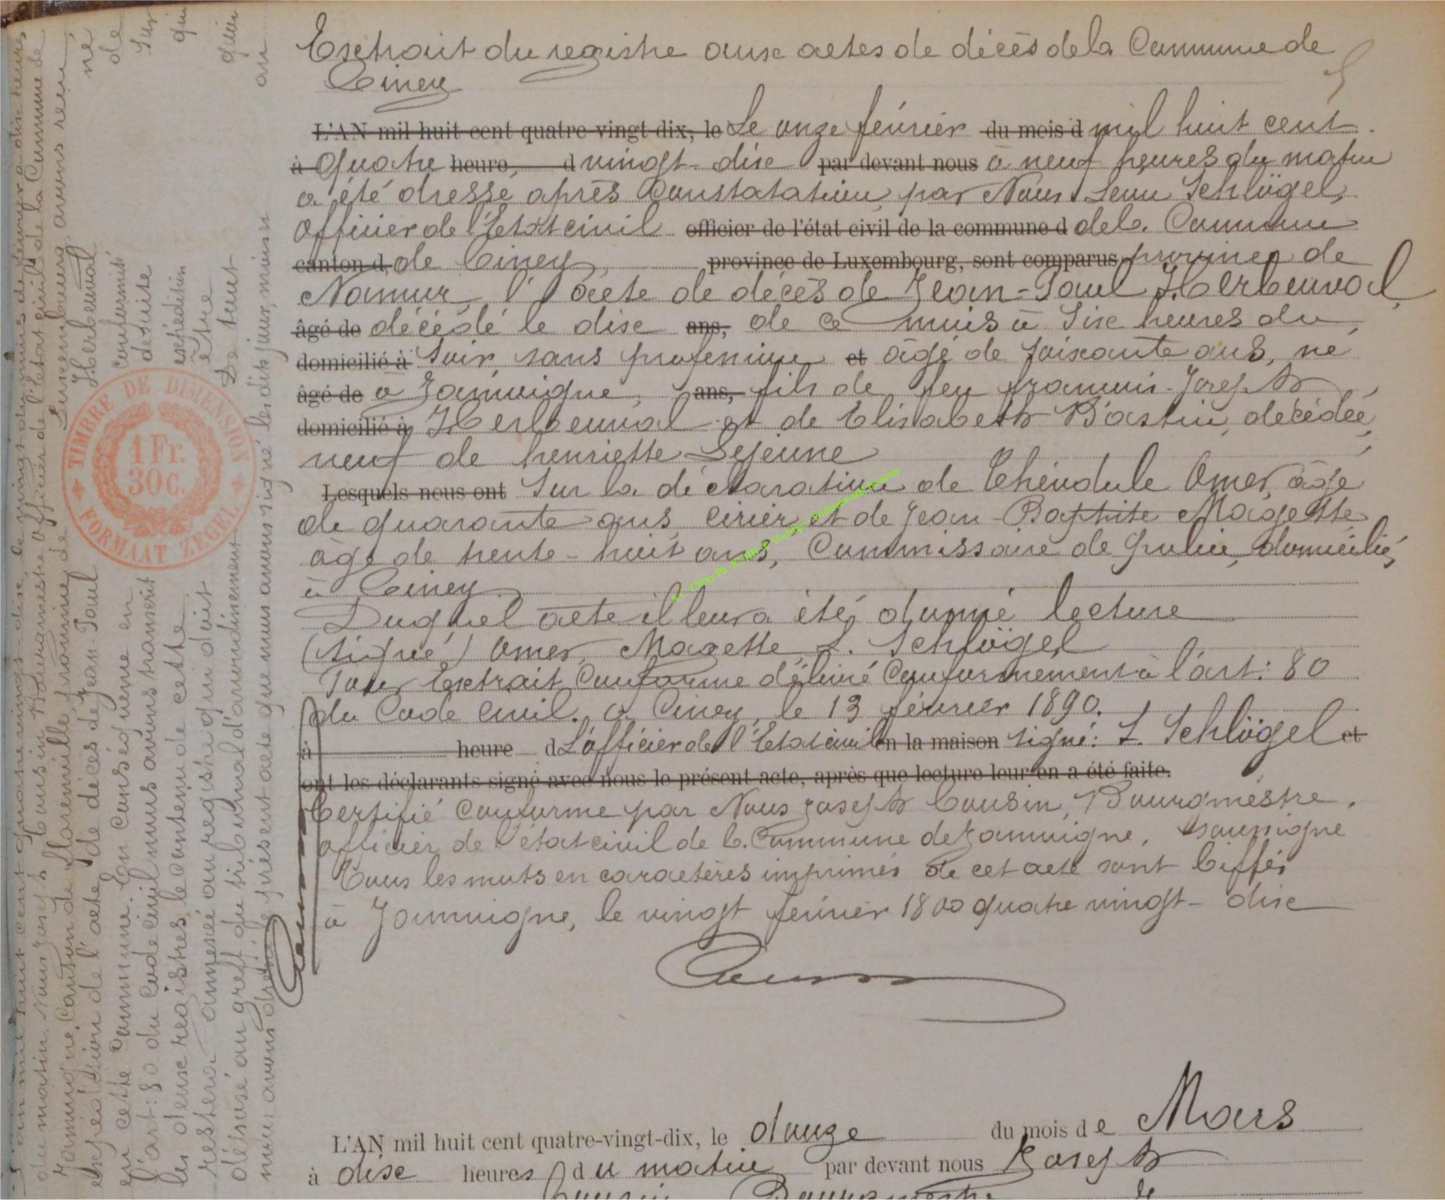 Extrait du registre aux actes de décès de la Commune de
Ciney
L'AN mil huit cent quatre-vingt-dix, le Le onze février du mois d mil huit cent
à quatre heure, d vingt-dix par devant nous à neuf heures du matin
a été dressé après Constatation, par Nous Schlögel,
officier de l'Etat civil officier de l'état civil de la commune d de la Commune
canton d de Ciney, province de Luxembourg, sont comparus province de
Namur, l'acte de décès de Jean-Paul Herbeuval,
âgé de décédé le dix ans, de ce mois à six heures du
domicilié à soir sans profession et âgé de soixante ans, né
âgé de à Jamoigne, ans, fils de feu françois-Joseph
domicilié à Herbeuval et de Elisabeth Bastin, décédée,
veuf de henriette Lejeune
Lesquels nous ont Sur la déclaration de Théodule Omer, âgé
de quarante ans, cirier et de Jean-Baptiste Mazette
âgé de trente-huit ans, Commissaire de police, domiciliés,
à Ciney
Duquel acte il leur a été donné lecture
(signé) Omer, Mazette L. Schlögel
Pour Extrait Conforme délivré Conformément à l'art: 80
du Code Civil. à Ciney, le 13 février 1890.
à heure d L'officier de l'Etat civil en la maison signé: L. Schlögel et
ont les déclarants signé avec nous le présent acte, après que lecture leur en a été faite.
Certifié conforme par Nous Joseph Cousin, Bourgmestre,
officier de l'état civil de la Commune de Jamoigne, soussigné
Tous les mots en caractères imprimés de cet acte sont biffés
à Jamoigne, le vingt février 1800 quatre vingt-dix
Cousin
L'AN mil huit cent quatre-vingt-dix, le douze du mois de Mars
à dix heures du matin par devant nous Joseph
Cousin Bourgmestre de
L'an mil huit cent quatre vingt-dix le vingt du mois de février à dix heures
du matin, Nous Joseph Cousin Bourgmestre officier de l'état civil de la Commune de
Jamoigne, Canton de Florenville, province de Luxembourg, avons reçu une
expédition de l'acte de décès de Jean Paul Herbeuval de
en cette Commune. En conséquence en conformité sur
l'art: 80 du Code civil nous avons transcrit de suite qui
les deux registres, le contenu de cette expédition
restera annexée au registre qui doit être
déposé au greffe du tribunal d'arrondissement De tout quoi
nous avons dressé le présent acte que nous avons signé les dits jour, mois et an
Cousin
TIMBRE DE DIMENSION
1 Fr.
30 c.
FORMAAT ZEGEL